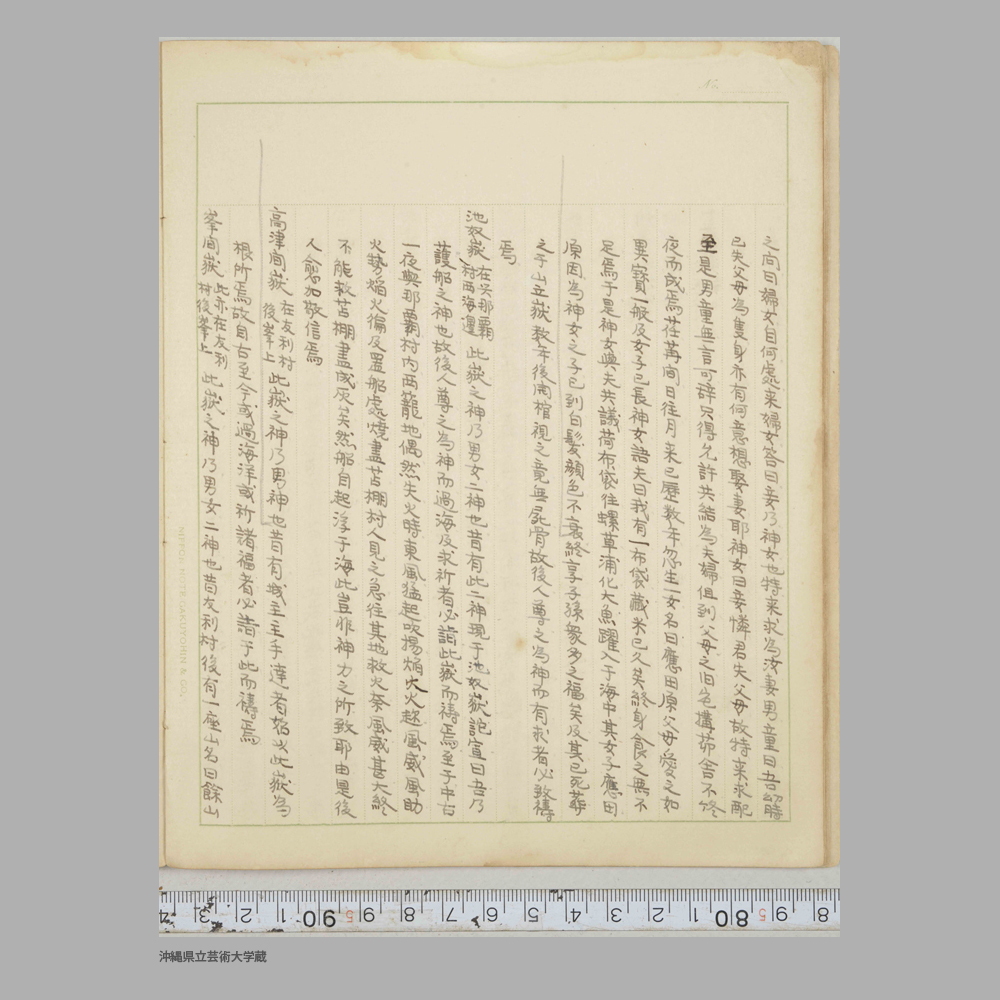 之向曰婦女自何處来婦女答曰妾乃神女也特来求為汝妻男童曰吾幼時
已失父母為隻身亦有何意想娶妻耶神女曰妾憐君失父母故特来求配
至是男童無言可辞只得允許共結為夫婦但到父母之旧宅構茆舎不終
夜而成焉荏苒間日往月来已歴数年忽生一女名曰應田原父母愛之如
異寳一般及女子已長神女語夫曰我有一布袋蔵米已久矣終身食之無不
足焉于是神女與夫共議荷布袋往螺草浦化大魚躍入于海中其女子應田
原因為神女之子已到白髪顔色不衰終享子孫衆多之福矣及其已死葬
之于山立嶽数年後開棺視之竟無屍骨故後人尊之為神而有求者必致禱
焉
池奴嶽 在与那覇村西海邊 此嶽之神乃男女二神也昔有此二神現于池奴嶽詑宣曰吾乃
護船之神也故後人尊之為神而過海及求祈者必詣此嶽而禱焉至于中古
一夜與那覇村内西籠地偶然失火時東風猛起吹揚焔火火趁風威風助
火勢焔火徧及置船處焼盡苫棚村人見之急往其地救火奈風威甚大終
不能救苫棚盡成灰矣然船自起浮于海此豈非神力之所致耶由是後
人愈加敬信焉
高津間嶽 在友利村後峯上 此嶽之神乃男神也昔有城主主手達者始以此嶽為
根所焉故自古至今或過海洋或祈諸福者必詣于此而禱焉
峯間嶽 此亦在友利村後峯上 此嶽之神乃男女二神也昔友利村後有一座山名曰餘山
No.
NIPPON NOTE GAKUYOHIN & CO.
4 3 2 1 90 5 9 8 7 6 5 4 3 2 1 80 5 9 8
沖縄県立芸術大学蔵